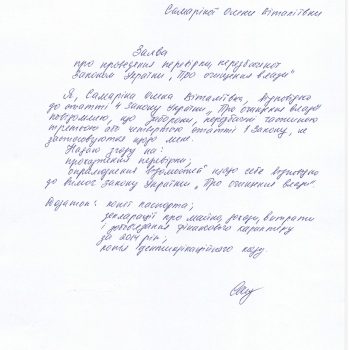 Самаріної Олени Віталіївни
Заява
про проведення перевірки, передбаченої
Законом України „Про очищення влади"
Я, Самаріна Олена Віталіївна, відповідно
до статті 4 Закону України „Про очищення влади"
повідомляю, що заборони, передбачені частиною
третьою або четвертою статті 1 Закону, не
застосовуються щодо мене.
Надаю згоду на:
проходження перевірки;
оприлюднення відомостей щодо себе відповідно
до вимог Закону України „Про очищення влади"
Додаток: копії паспорта;
декларації про майно, доходи, витрати
і зобов'язання фінансового характеру
за 2014 рік;
копія ідентифікаційного коду.